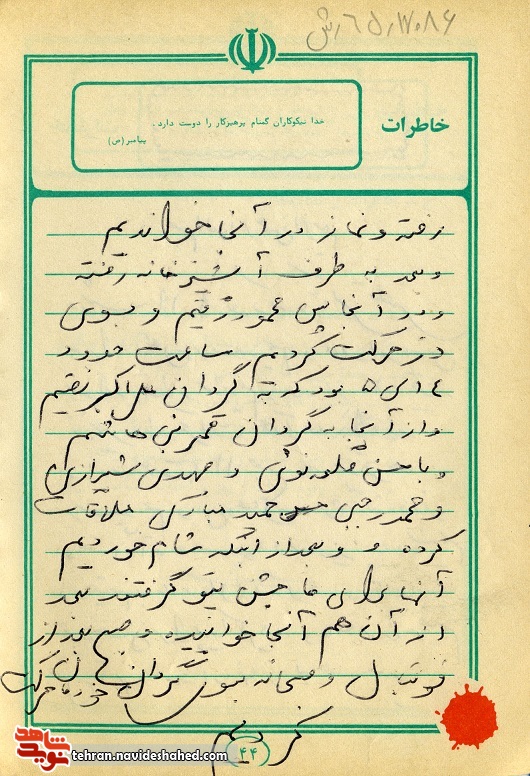 ۱۷۰۸۶
خاطرات
خدا نیکوکاران گمنام پرهیزکار را دوست دارد.
پیامبر (ص)
رفته و نماز در آنجا خواندیم
و بعد به طرف آشپزخانه رفته
و در آنجا پس رفتیم و بسوی
دز حرکت کردیم ساعت حدود
۴ الی ۵ بود که به گردان علی اکبر رفتیم
و از آنجا به گردان قمر بنی هاشم
و با حسن و مهدی شیرازی
و محمد رجبی حمید مبارکی ملاقات
کرده و و بعد از اینکه شام خوردیم
آنها برای ما پتو گرفتند بعد
از آن هم آنجا خوابیده و صبح بعد از
فوتبال و صبحانه بسوی گردان خودمان حرکت
کردیم
۴۴
شاهد
نوید
tehran.navideshahed.com